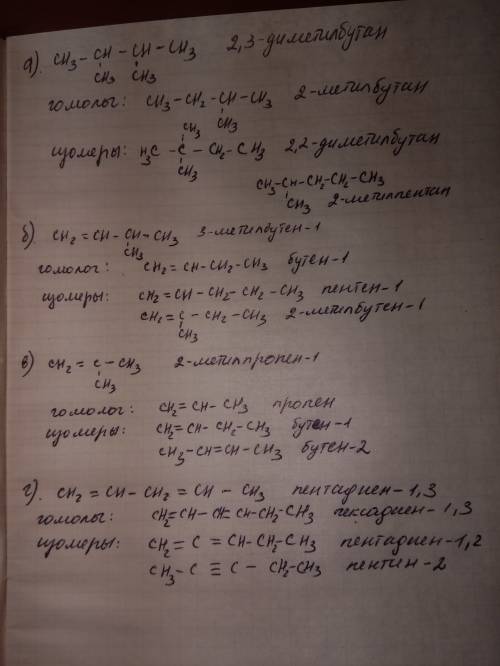 а). CH₃ – CH – CH – CH₃ 2,3-диметилбутан
CH₃ CH₃
гомологи: CH₃ – CH₂ – CH – CH₃ 2-метилбутан
CH₃
CH₃
изомеры: H₃C – C – CH₂ – CH₃ 2,2-диметилбутан
CH₃
CH₃–CH–CH₂–CH₂–CH₃
CH₃ 2-метилпентан
б) CH₂ = CH – CH – CH₃ 3-метилбутен-1
CH₃
гомолог: CH₂ = CH – CH₂ – CH₃ бутен-1
изомеры: CH₂ = CH – CH₂ – CH₂ – CH₃ пентен-1
CH₂ = C – CH₂ – CH₃ 2-метилбутен-1
CH₃
в) CH₂ = C – CH₃ 2-метилпропен-1
CH₃
гомолог: CH₂ = CH – CH₃ пропен
изомеры: CH₂ = CH – CH₂ – CH₃ бутен-1
CH₃ – CH = CH – CH₃ бутен-2
г) CH₂ = CH – CH₂ = CH – CH₃ пентадиен-1,3
гомологи: CH₂ = CH – CH = CH – CH₂ – CH₃ гексадиен-1,3
изомеры: CH₂ = C = CH – CH₂ – CH₃ пентадиен-1,2
CH₃ – C ≡ C – CH₂ – CH₃ пентин-2